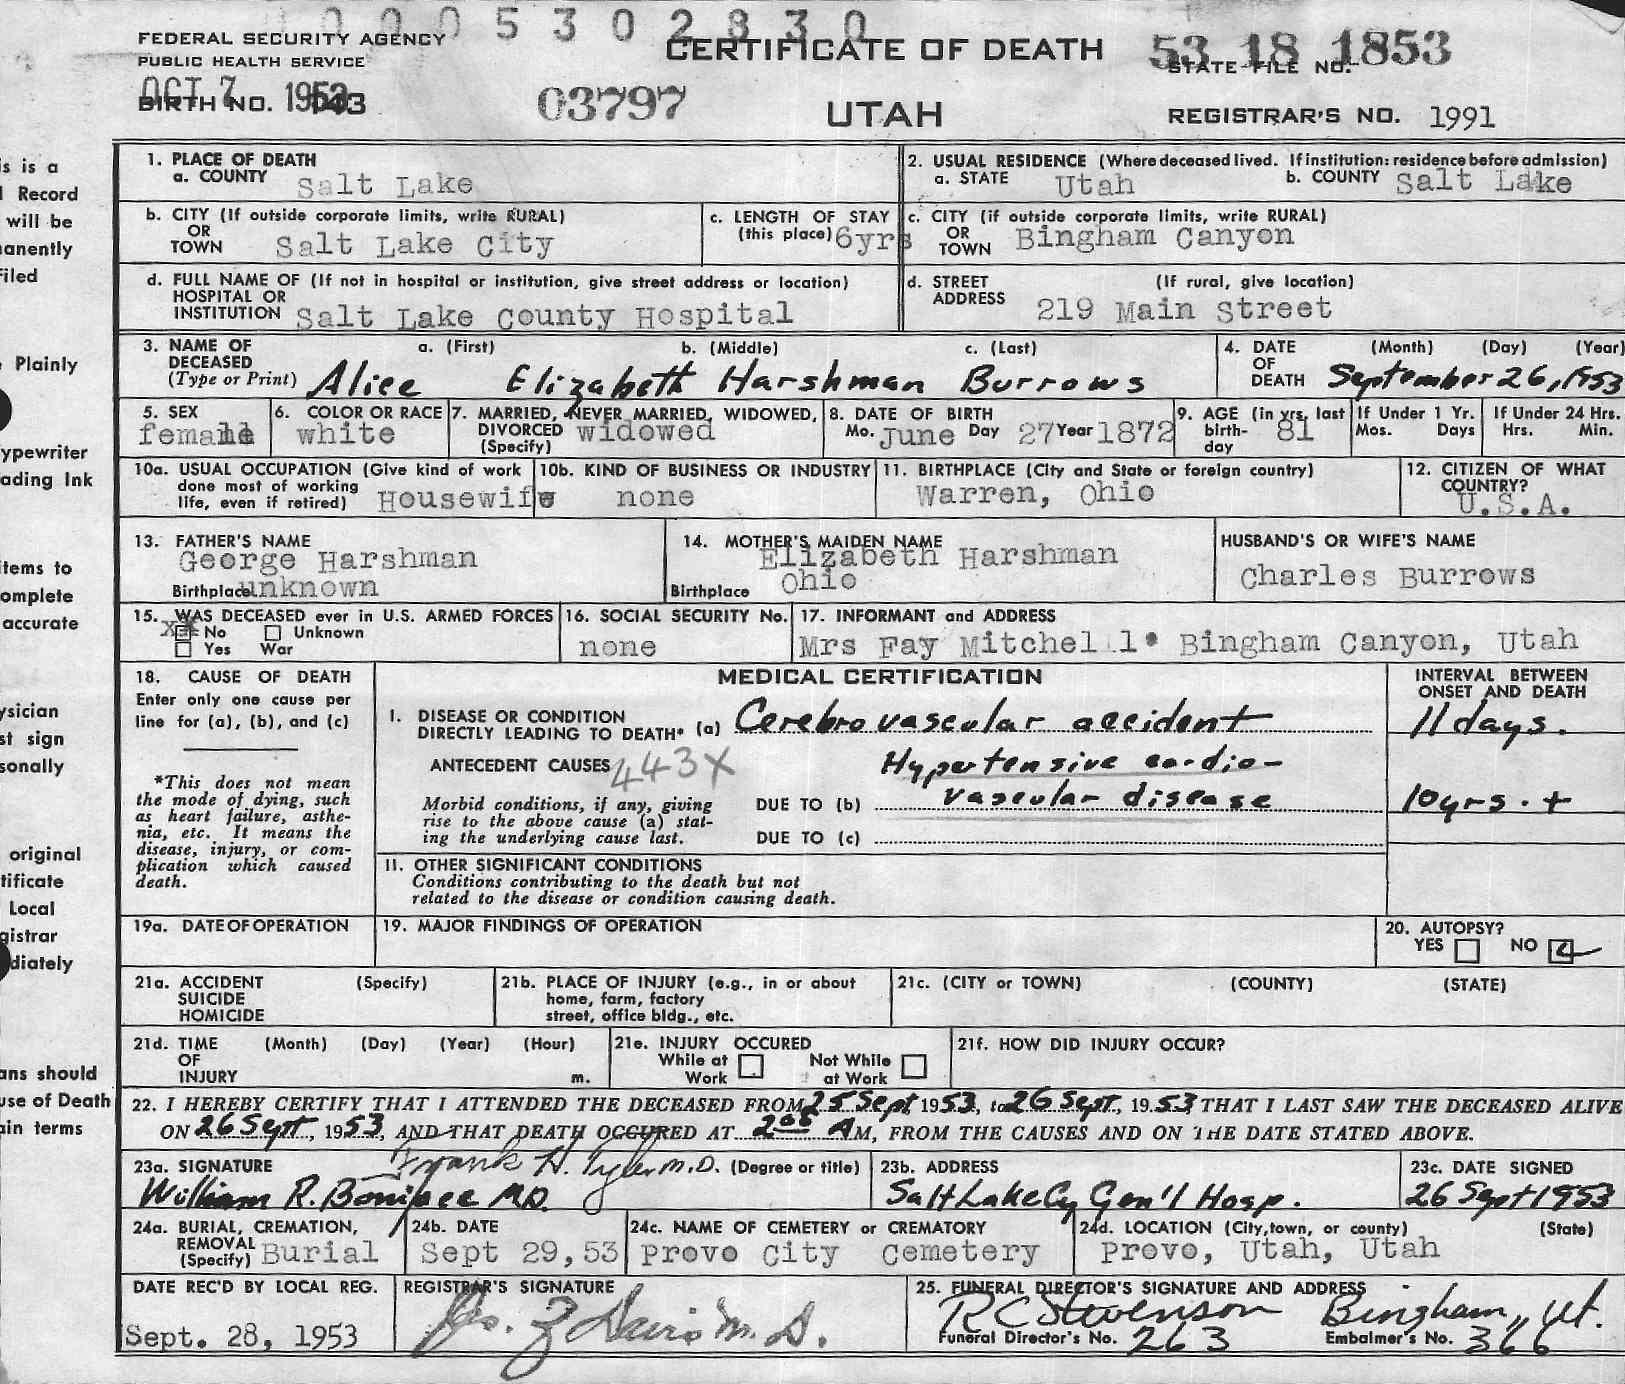 0 0 0 5 3 0 2 8 3 0
FEDERAL SECURITY AGENCY
PUBLIC HEALTH SERVICE
CERTIFICATE OF DEATH
53 18 1853
STATE FILE NO.
OCT 7 1953
BIRTH NO. 143
03797
UTAH
REGISTRAR'S NO. 1991
1. PLACE OF DEATH
a. COUNTY Salt Lake
2. USUAL RESIDENCE (Where deceased lived. If institution: residence before admission)
a. STATE Utah b. COUNTY Salt Lake
b. CITY (If outside corporate limits, write RURAL)
OR
TOWN Salt Lake City
c. LENGTH OF STAY
(this place) 6yrs
c. CITY (if outside corporate limits, write RURAL)
OR
TOWN Bingham Canyon
d. FULL NAME OF (If not in hospital or institution, give street address or location)
HOSPITAL OR
INSTITUTION Salt Lake County Hospital
d. STREET (If rural, give location)
ADDRESS 219 Main Street
3. NAME OF a. (First) b. (Middle) c. (Last)
DECEASED
(Type or Print) Alice Elizabeth Harshman Burrows
4. DATE (Month) (Day) (Year)
OF
DEATH September 26, 1953
5. SEX
female
6. COLOR OR RACE
white
7. MARRIED, NEVER MARRIED, WIDOWED,
DIVORCED widowed
(Specify)
8. DATE OF BIRTH
Mo. June Day 27 Year 1872
9. AGE (in yrs. last
birth- 81
day
If Under 1 Yr.
Mos. Days
If Under 24 Hrs.
Hrs. Min.
10a. USUAL OCCUPATION (Give kind of work
done most of working
life, even if retired) Housewife
10b. KIND OF BUSINESS OR INDUSTRY
none
11. BIRTHPLACE (City and State or foreign country)
Warren, Ohio
12. CITIZEN OF WHAT
COUNTRY?
U.S.A.
13. FATHER'S NAME
George Harshman
Birthplace unknown
14. MOTHER'S MAIDEN NAME
Elizabeth Harshman
Birthplace Ohio
HUSBAND'S OR WIFE'S NAME
Charles Burrows
15. WAS DECEASED ever in U.S. ARMED FORCES
No Unknown
Yes War
16. SOCIAL SECURITY No.
none
17. INFORMANT and ADDRESS
Mrs Fay Mitchell. Bingham Canyon, Utah
18. CAUSE OF DEATH
Enter only one cause per
line for (a), (b), and (c)
*This does not mean
the mode of dying, such
as heart failure, asthe-
nia, etc. It means the
disease, injury, or com-
plication which caused
death.
MEDICAL CERTIFICATION
INTERVAL BETWEEN
ONSET AND DEATH
I. DISEASE OR CONDITION
DIRECTLY LEADING TO DEATH* (a) Cerebrovascular accident 11 days.
ANTECEDENT CAUSES 443X Hypertensive cardio-
Morbid conditions, if any, giving DUE TO (b) vascular disease 10 yrs. +
rise to the above cause (a) stat-
ing the underlying cause last. DUE TO (c)
II. OTHER SIGNIFICANT CONDITIONS
Conditions contributing to the death but not
related to the disease or condition causing death.
19a. DATE OF OPERATION
19. MAJOR FINDINGS OF OPERATION
20. AUTOPSY?
YES NO
21a. ACCIDENT (Specify)
SUICIDE
HOMICIDE
21b. PLACE OF INJURY (e.g., in or about
home, farm, factory
street, office bldg., etc.
21c. (CITY or TOWN) (COUNTY) (STATE)
21d. TIME (Month) (Day) (Year) (Hour)
OF
INJURY m.
21e. INJURY OCCURED
While at Not While
Work at Work
21f. HOW DID INJURY OCCUR?
22. I HEREBY CERTIFY THAT I ATTENDED THE DECEASED FROM 25 Sept 1953, to 26 Sept, 1953 THAT I LAST SAW THE DECEASED ALIVE
ON 26 Sept, 1953, AND THAT DEATH OCCURED AT 2 00 AM, FROM THE CAUSES AND ON THE DATE STATED ABOVE.
23a. SIGNATURE Frank H. Tyler M.D. (Degree or title)
William R. Bonifiee MD.
23b. ADDRESS
Salt Lake Cy Gen'l Hosp.
23c. DATE SIGNED
26 Sept 1953
24a. BURIAL, CREMATION,
REMOVAL
(Specify) Burial
24b. DATE
Sept 29, 53
24c. NAME OF CEMETERY or CREMATORY
Provo City Cemetery
24d. LOCATION (City, town, or county) (State)
Provo, Utah, Utah
DATE REC'D BY LOCAL REG.
Sept. 28, 1953
REGISTRAR'S SIGNATURE
Jos. Z Davis M.D.
25. FUNERAL DIRECTOR'S SIGNATURE AND ADDRESS
R C Stevenson Bingham, Ut.
Funeral Director's No. 263 Embalmer's No. 366
is is a
Record
will be
anently
iled
Plainly
ypewriter
ading Ink
tems to
omplete
accurate
ysician
st sign
sonally
original
tificate
Local
gistrar
diately
ans should
use of Death
ain terms